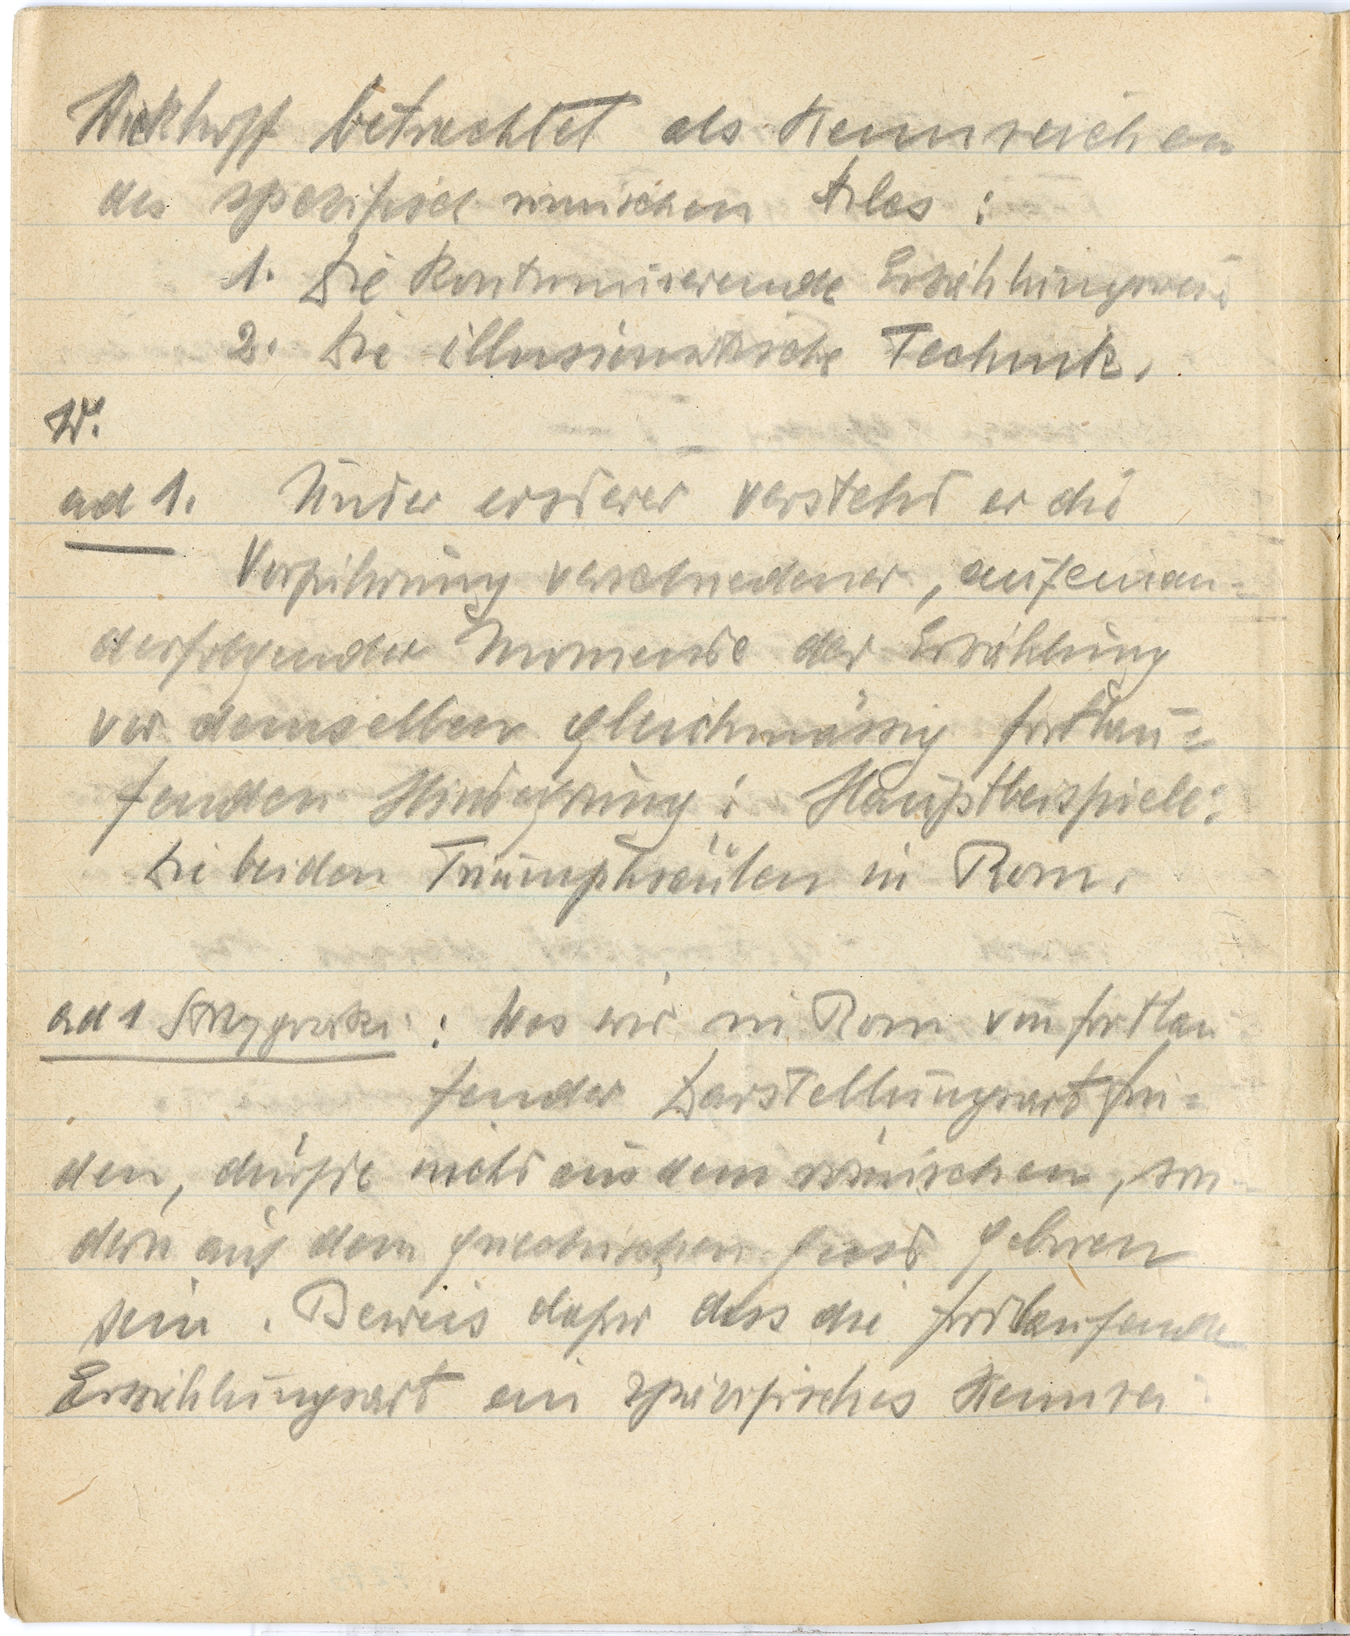 Wickhoff betrachtet als Kennzeichen
des spezifisch römischen Stiles :
1. Die kontinuierende Erzählungsweise
2. Die illusionistische Technik.
W.
ad 1. Unter ersterer versteht er die
Vorführung verschiedener, aufeinan=
derfolgender Momente der Erzählung
vor demselben gleichmässig fortlau=
fenden Hintergrund ; Hauptbeispiele:
Die beiden Triumphsäulen in Rom.
ad 1 Strzygowski : Was wir in Rom von fortlau
fender Darstellungsart fin=
den, dürfte nicht aus dem römischen, son-
dern aus dem griechischen Geist geboren
sein . Beweis dafür dass die fortlaufende
Erzählungsart ein spezifisches Kennzei